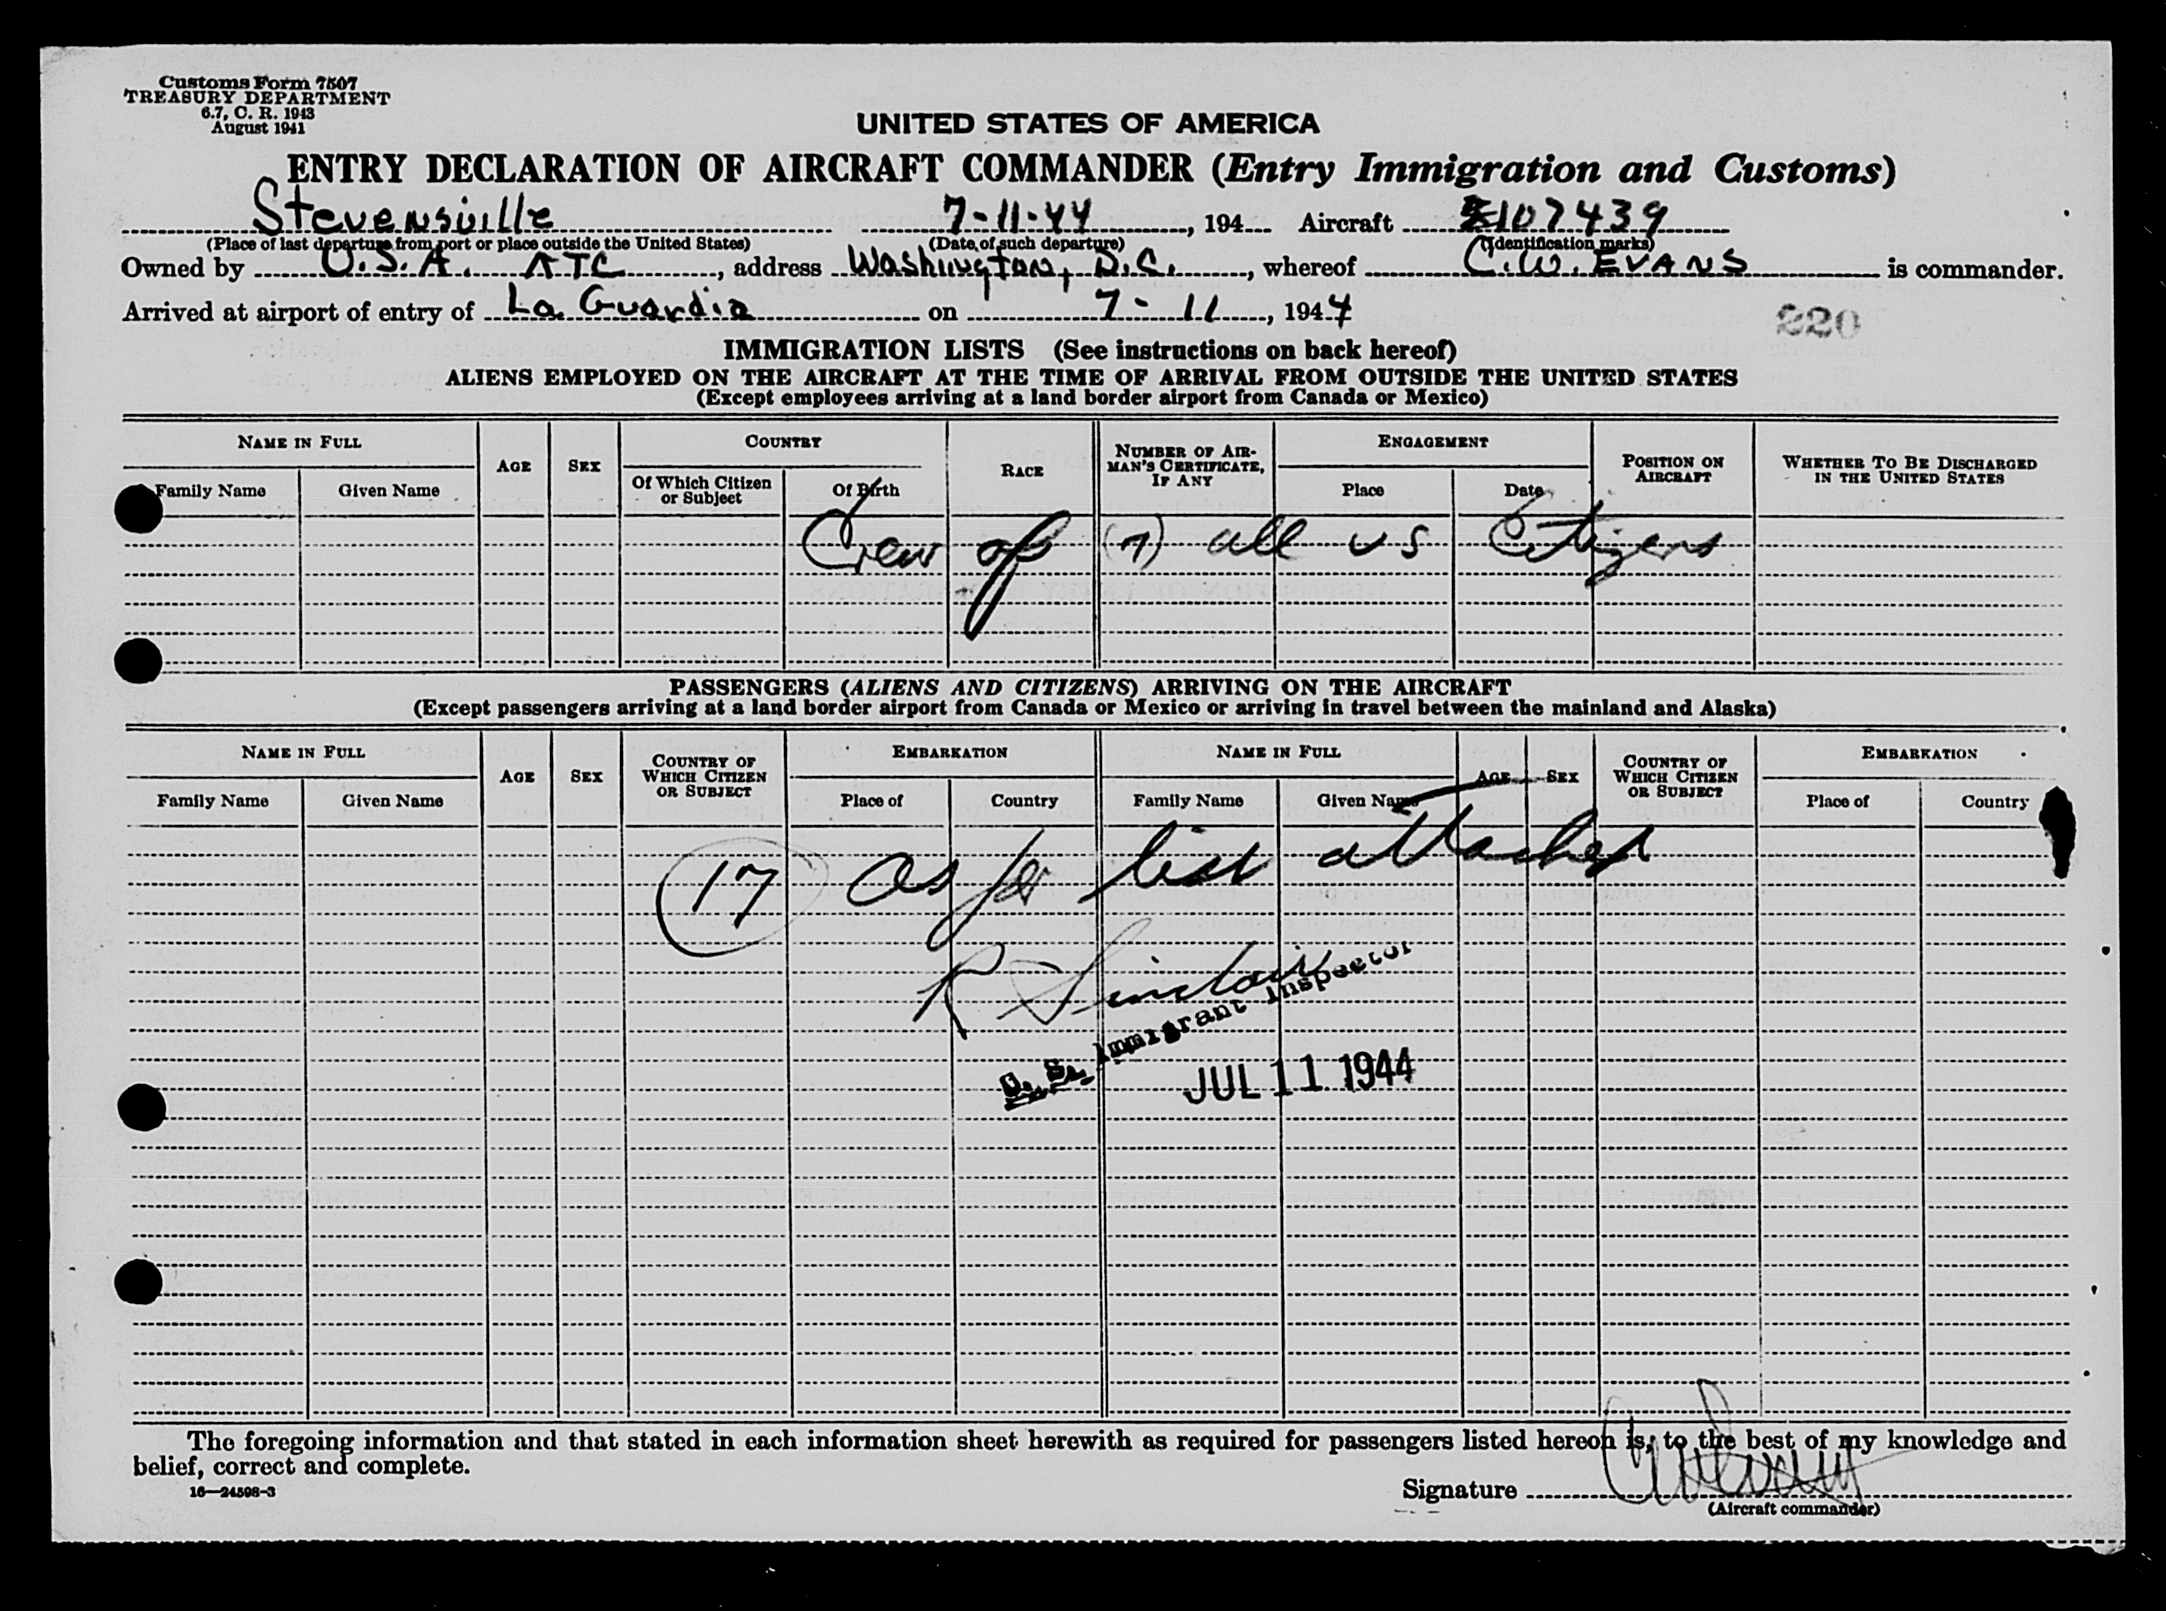 Customs Form 7507
TREASURY DEPARTMENT
6.7, C. R. 1943
August 1941
UNITED STATES OF AMERICA
ENTRY DECLARATION OF AIRCRAFT COMMANDER (Entry Immigration and Customs)
Stevensville 7-11-44, 194 Aircraft 107439
(Place of last departure from port or place outside the United States) (Date of such departure) (Identification marks)
Owned by U.S.A. ATC, address Washington, D.C., whereof C.W. EVANS is commander.
Arrived at airport of entry of La Guardia on 7-11, 1944
220
IMMIGRATION LISTS (See instructions on back hereof)
ALIENS EMPLOYED ON THE AIRCRAFT AT THE TIME OF ARRIVAL FROM OUTSIDE THE UNITED STATES
(Except employees arriving at a land border airport from Canada or Mexico)
NAME IN FULL AGE SEX COUNTRY RACE NUMBER OF AIRMAN'S CERTIFICATE, IF ANY ENGAGEMENT POSITION ON AIRCRAFT WHETHER TO BE DISCHARGED IN THE UNITED STATES
Family Name Given Name Of Which Citizen or Subject Of Birth Place Date
Crew of (7) all US Citizens
PASSENGERS (ALIENS AND CITIZENS) ARRIVING ON THE AIRCRAFT
(Except passengers arriving at a land border airport from Canada or Mexico or arriving in travel between the mainland and Alaska)
NAME IN FULL AGE SEX COUNTRY OF WHICH CITIZEN OR SUBJECT EMBARKATION NAME IN FULL AGE SEX COUNTRY OF WHICH CITIZEN OR SUBJECT EMBARKATION
Family Name Given Name Place of Country Family Name Given Name Place of Country
17 As per list attached
R Sinclair
U. S. Immigrant Inspector
JUL 11 1944
The foregoing information and that stated in each information sheet herewith as required for passengers listed hereon is, to the best of my knowledge and
belief, correct and complete.
16—24598-3
Signature
(Aircraft commander)